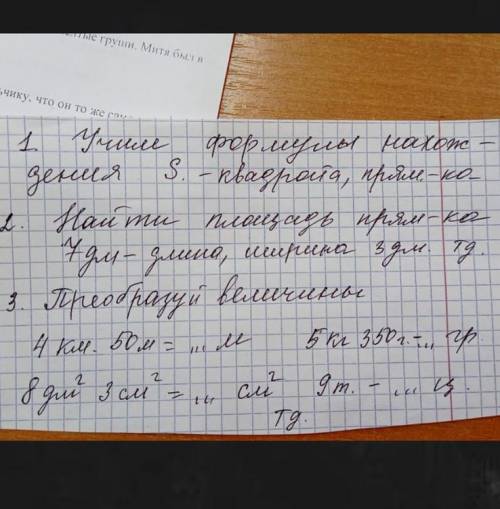 груши. Митя был в
чику, что он то же
1. Учим формулы нахож-
дения S. - квадрата, прям.-ка
2. Найти площадь прям-ка
7 дм - длина, ширина 3 дм. тд.
3. Преобразуй величины
4 км. 50м = ... м 5 кг 350 г. - ... гр.
8 дм² 3 см² = ... см² 9 т. - ... ц.
тд.